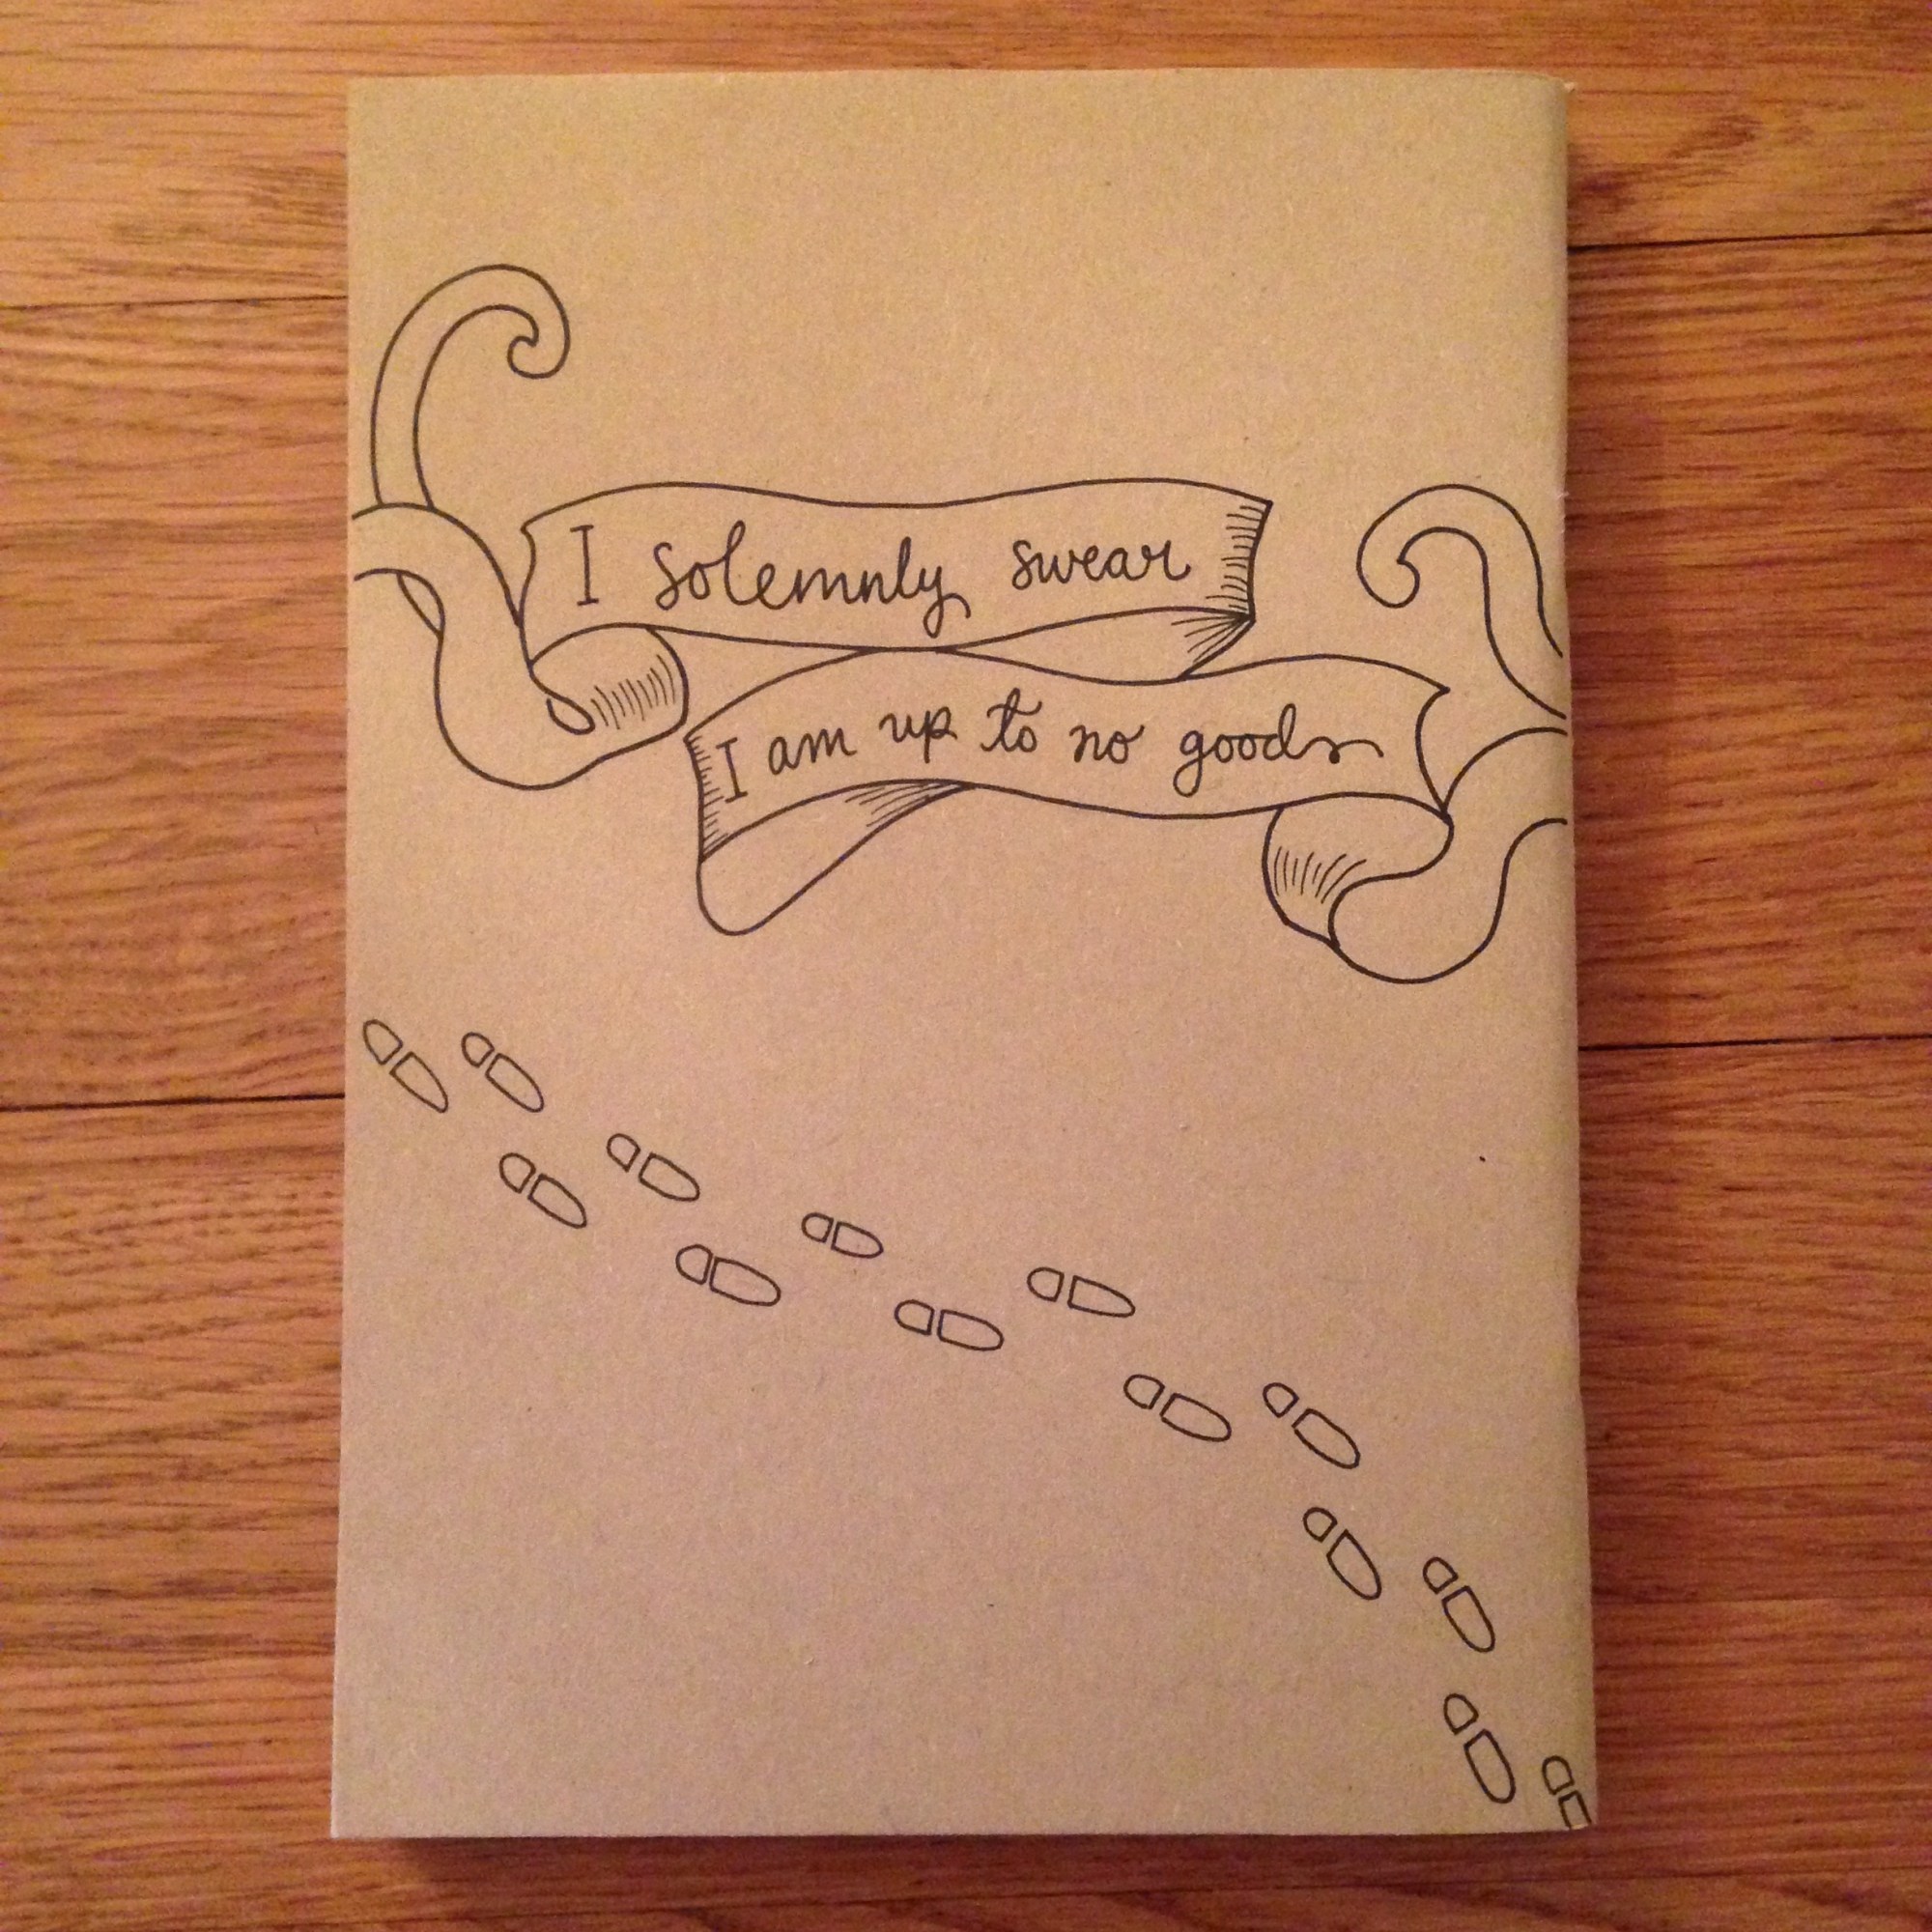 I solemnly swear
I am up to no good